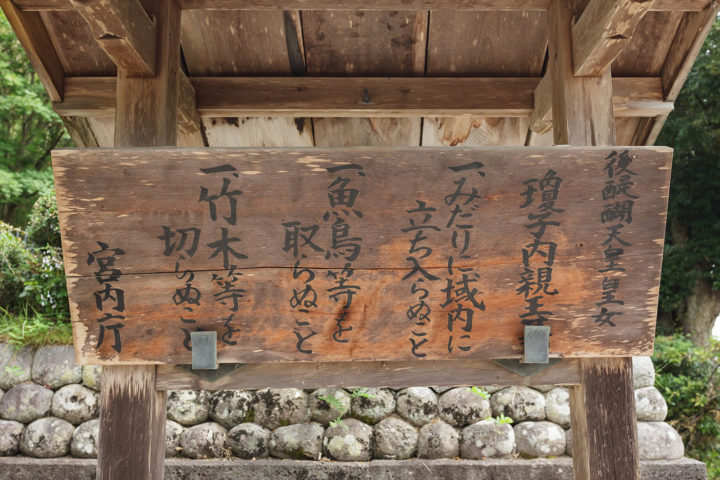 後醍醐天皇皇女
瓊子内親王
一、みだりに域内に
立ち入らぬこと
一、魚鳥等を
取らぬこと
一、竹木等を
切らぬこと
宮内庁